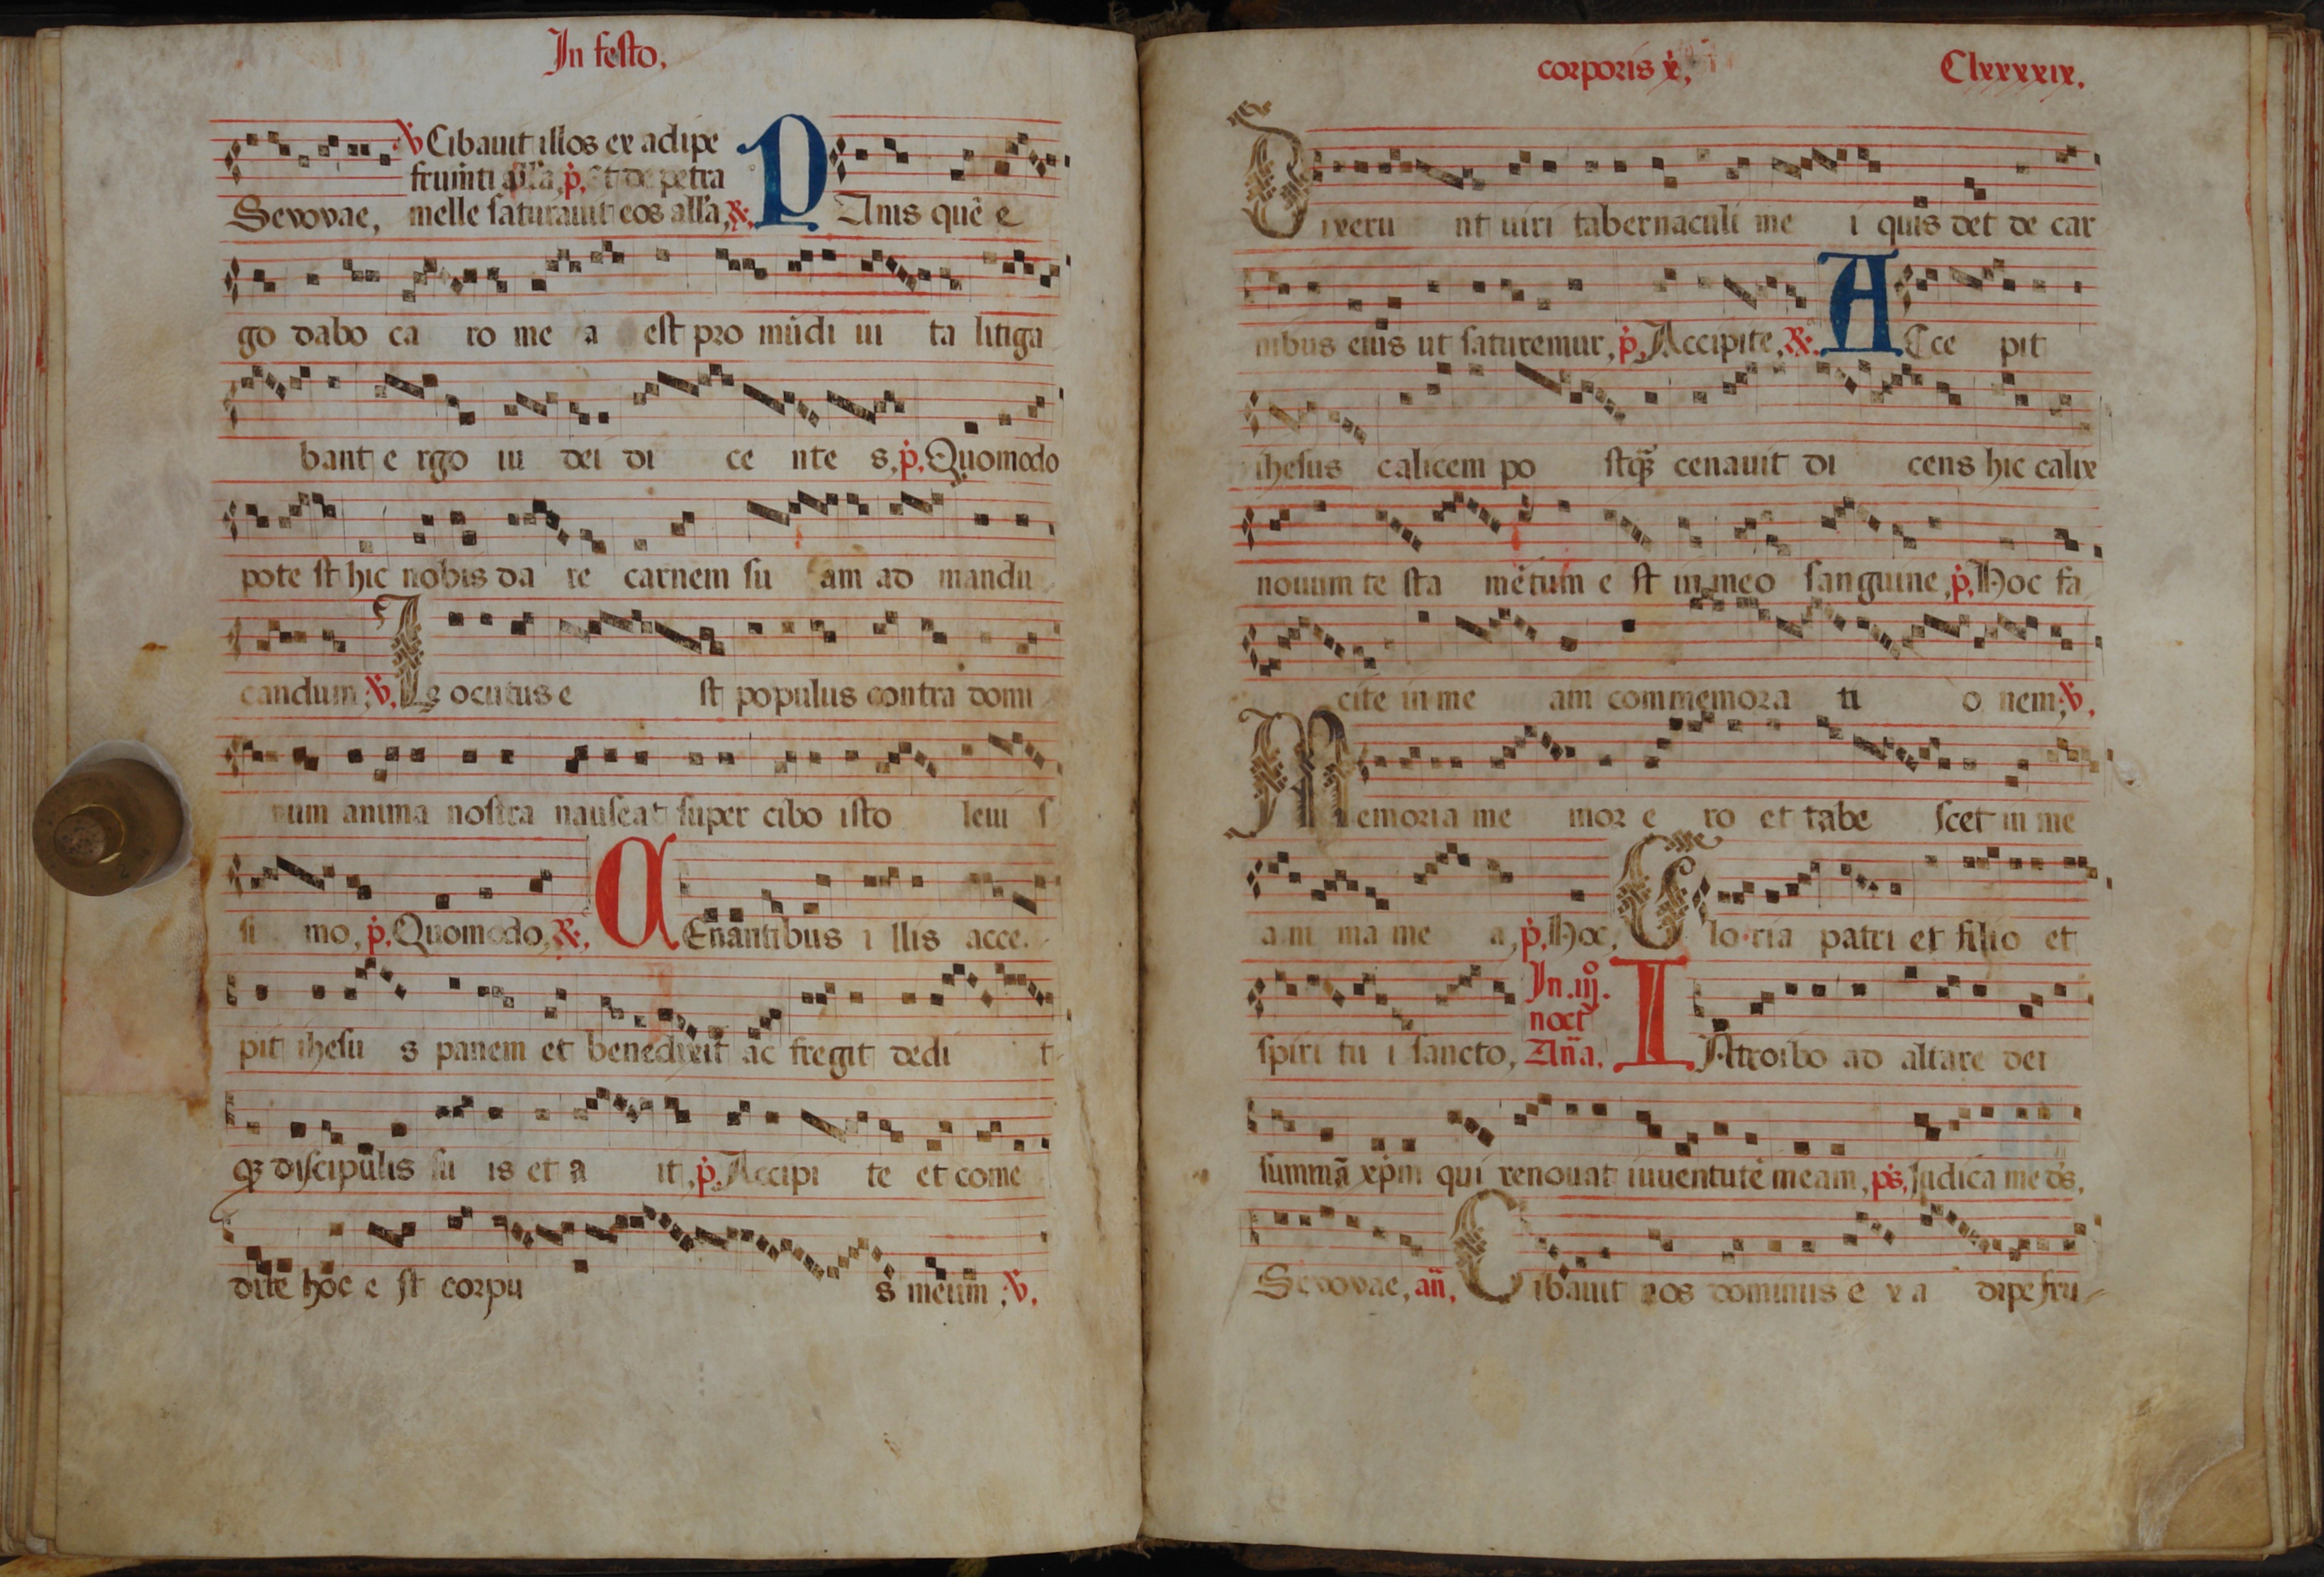 In festo.
℣ Cibauit illos ex adipe
frumti alla, p̈, Et de petra
Seuouae, melle saturauit eos alla, ℟. PAnis quē e
go dabo ca ro me a est pro mūdi ui ta litiga
bant e rgo iu dei di ce nte s, p̈, Quomodo
pote st hic nobis da re carnem su am ad mandu
candum; ℣. Locutus e st populus contra domi
num anima nostra nauseat super cibo isto leui s
si mo, p̈, Quomodo, ℟. CEnantibus i llis acce
pit ihesu s panem et benedixit ac fregit dedi t
qꝫ discipulis su is et a it, p̈, Accipi te et come
dite hoc e st corpu s meum; ℣.
corporis x̄, Clxxxxix.
Dixeru nt uiri tabernaculi me i quis det de car
nibus eius ut saturemur, p̈, Accipite, ℟. ACce pit
ihesus calicem po stqꝫ cenauit di cens hic calix
nouum te sta mētum e st in meo sanguine, p̈, Hoc fa
cite in me am commemora ti o nem; ℣.
Memoria me mor e ro et tabe scet in me
a ni ma me a, p̈, Hoc, Gloria patri et filio et
spiri tu i sancto, In .iij. noct Añа. INtroibo ad altare dei
summā xp̄m qui renouat iuuentutē meam, ps, Iudica me ds,
Seuouae, añ, Cibauit nos dominus e x a dipe fru-